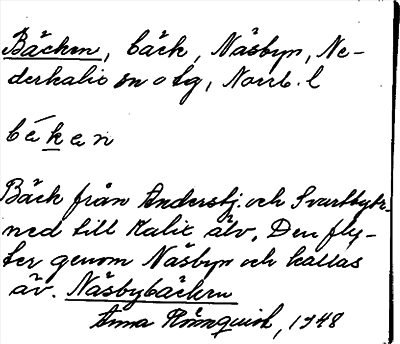 Bäcken, bäck, Näsbyn, Ne-
derkalix sn o tg, Norrb. l
béken
Bäck från Andersbj. och Svartbytr.
ned till Kalix älv. Den fly-
ter genom Näsbyn och kallas
äv. Näsbybäcken
Anna Rönnquist, 1948